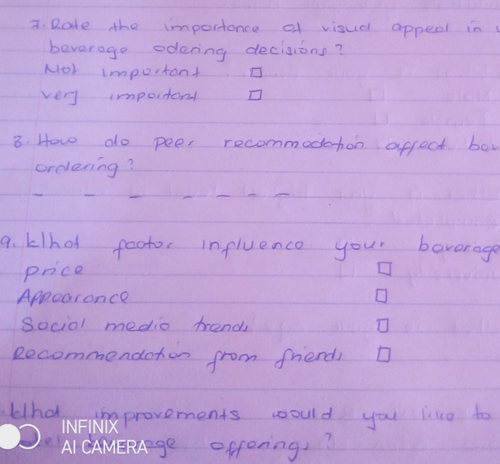 7. Rate the importance of visual appeal in
baverage odering decisions?
Not important
very important
8. How do peer recommodation affect bav
ordering?
9. What factor influence your bavarage
price
Appearance
Social media trends
Recommendation from friends
What improvements would you like to
offerings?
INFINIX
AI CAMERA